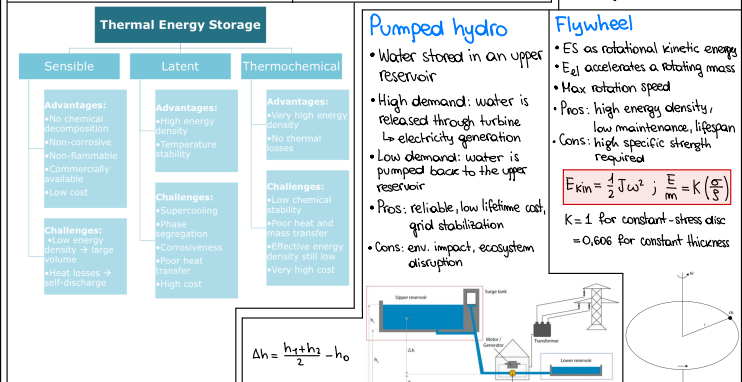 Thermal Energy Storage
Sensible
Latent
Thermochemical
Advantages:
•No chemical
decomposition
•Non-corrosive
•Non-flammable
•Commercially
available
•Low cost
Challenges:
•Low energy
density → large
volume
•Heat losses →
self-discharge
Advantages:
•High energy
density
•Temperature
stability
Challenges:
•Supercooling
•Phase
segregation
•Corrosiveness
•Poor heat
transfer
•High cost
Advantages:
•Very high energy
density
•No thermal
losses
Challenges:
•Low chemical
stability
•Poor heat and
mass transfer
•Effective energy
density still low
•Very high cost
Pumped hydro
• Water stored in an upper
reservoir
• High demand: water is
released through turbine
↳ electricity generation
• Low demand: water is
pumped back to the upper
reservoir
• Pros: reliable, low lifetime cost,
grid stabilization
• Cons: env. impact, ecosystem
disruption
Flywheel
• ES as rotational kinetic energy
• E_el accelerates a rotating mass
• Max rotation speed
• Pros: high energy density,
low maintenance, lifespan
• Cons: high specific strength
required
E_kin = 1/2 Jω² ; E/m = K (σ/ρ)
K = 1 for constant-stress disc
= 0,606 for constant thickness
Δh = (h₁+h₂)/2 − h₀
Upper reservoir
Surge tank
Δh
Motor /
Generator
Transformer
Lower reservoir
ω
m
r